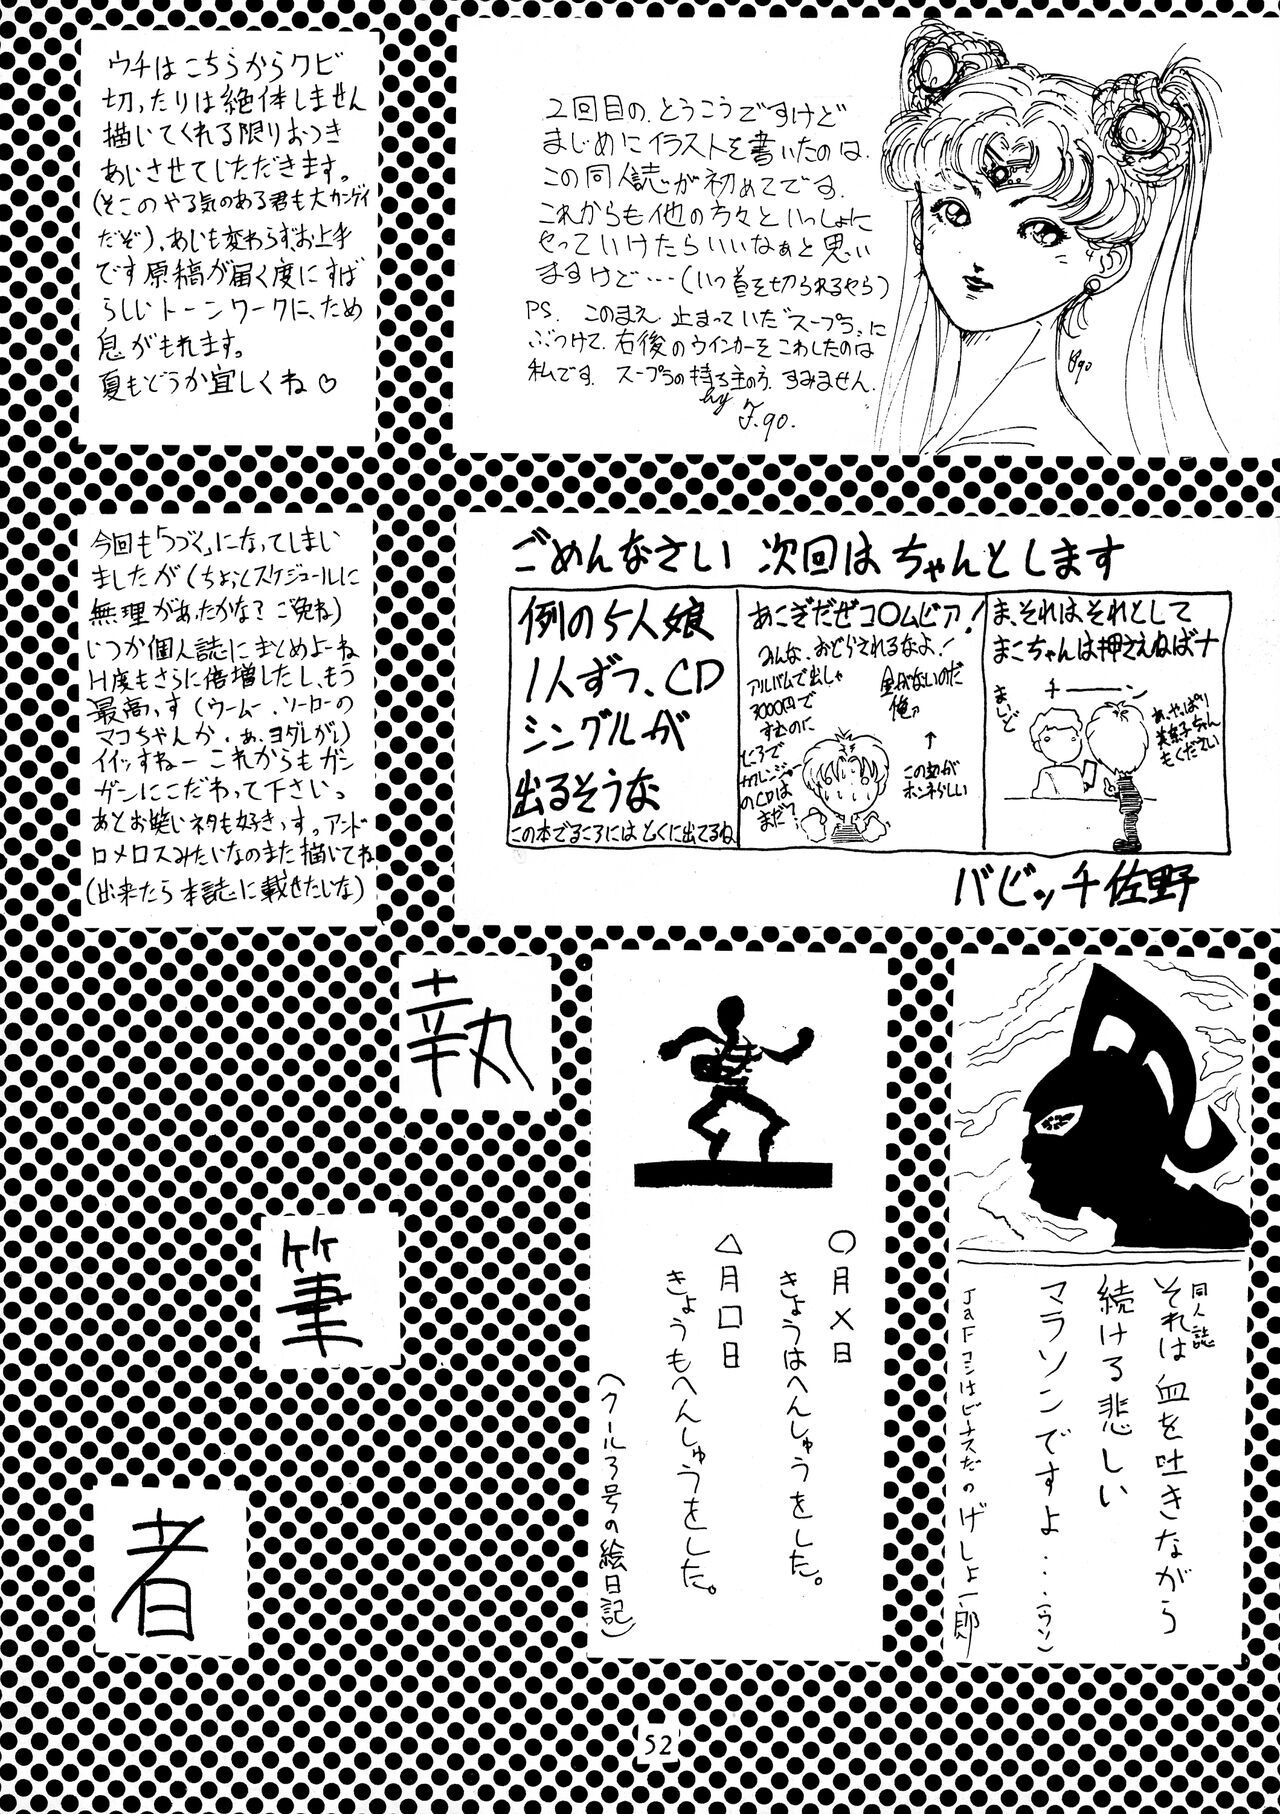 ウチはこちらからクビ
切ったりは絶体しません
描いてくれる限りおつき
あいさせていただきます。
(そこのやる気のある君も大カンゲイ
だぞ)、あいも変わらずお上手
です原稿が届く度にすば
らしいトーンワークに、ため
息がもれます。
夏もどうか宜しくね♡
2回目の、とうこうですけど
まじめにイラストを書いたのは、
この同人誌が初めてです。
これからも他の方々といっしょに
やっていけたらいいなぁと思い
ますけど…(いつ首を切られるやら)
PS. このまえ、止まっていた"スープラ"に
ぶつけて、右後のウインカーをこわしたのは
私です。スープラの持ち主の方、すみません。
by
F.90.
今回も「つづく」になってしまい
ましたが(ちょっとスケジュールに
無理があったかな?ご免ね)
いつか個人誌にまとめよーね
H度もさらに倍増したし、もう
最高っす(ウームー、ソーローの
マコちゃんか、あ、ヨダレが)
イイッすねー これからもガン
ガンにこだわって下さいっ
あとお笑いネタも好きっす。アンド
ロメロスみたいなのまた描いてね
(出来たら本誌に載せたいな)
ごめんなさい 次回は ちゃんとします
例の5人娘
1人ずつ、CD
シングルが
出るそうな
この本でるころにはとくに出てるね
あこぎだぜコ〇ムビア!
みんな、おどらされるなよ!
アルバムで出しゃ
3000円で
すむのに
ところで
のCDは
まだ?
金がないのだ
俺ァ
↑
この辺が
ホンネらしい
ま、それはそれとして
まこちゃんは押さえねばナ
チーーン
まいど
あ、やっぱり
美奈子ちゃん
もください
バビッチ佐野
執
筆
者
〇月×日
きょうはへんしゅうをした。
△月□日
きょうもへんしゅうをした。
(クール3号の絵日記)
同人誌
それは血を吐きながら
続ける悲しい
マラソンですよ…(ウソ)
JaFコンはビナスだのげしょ一郎
52